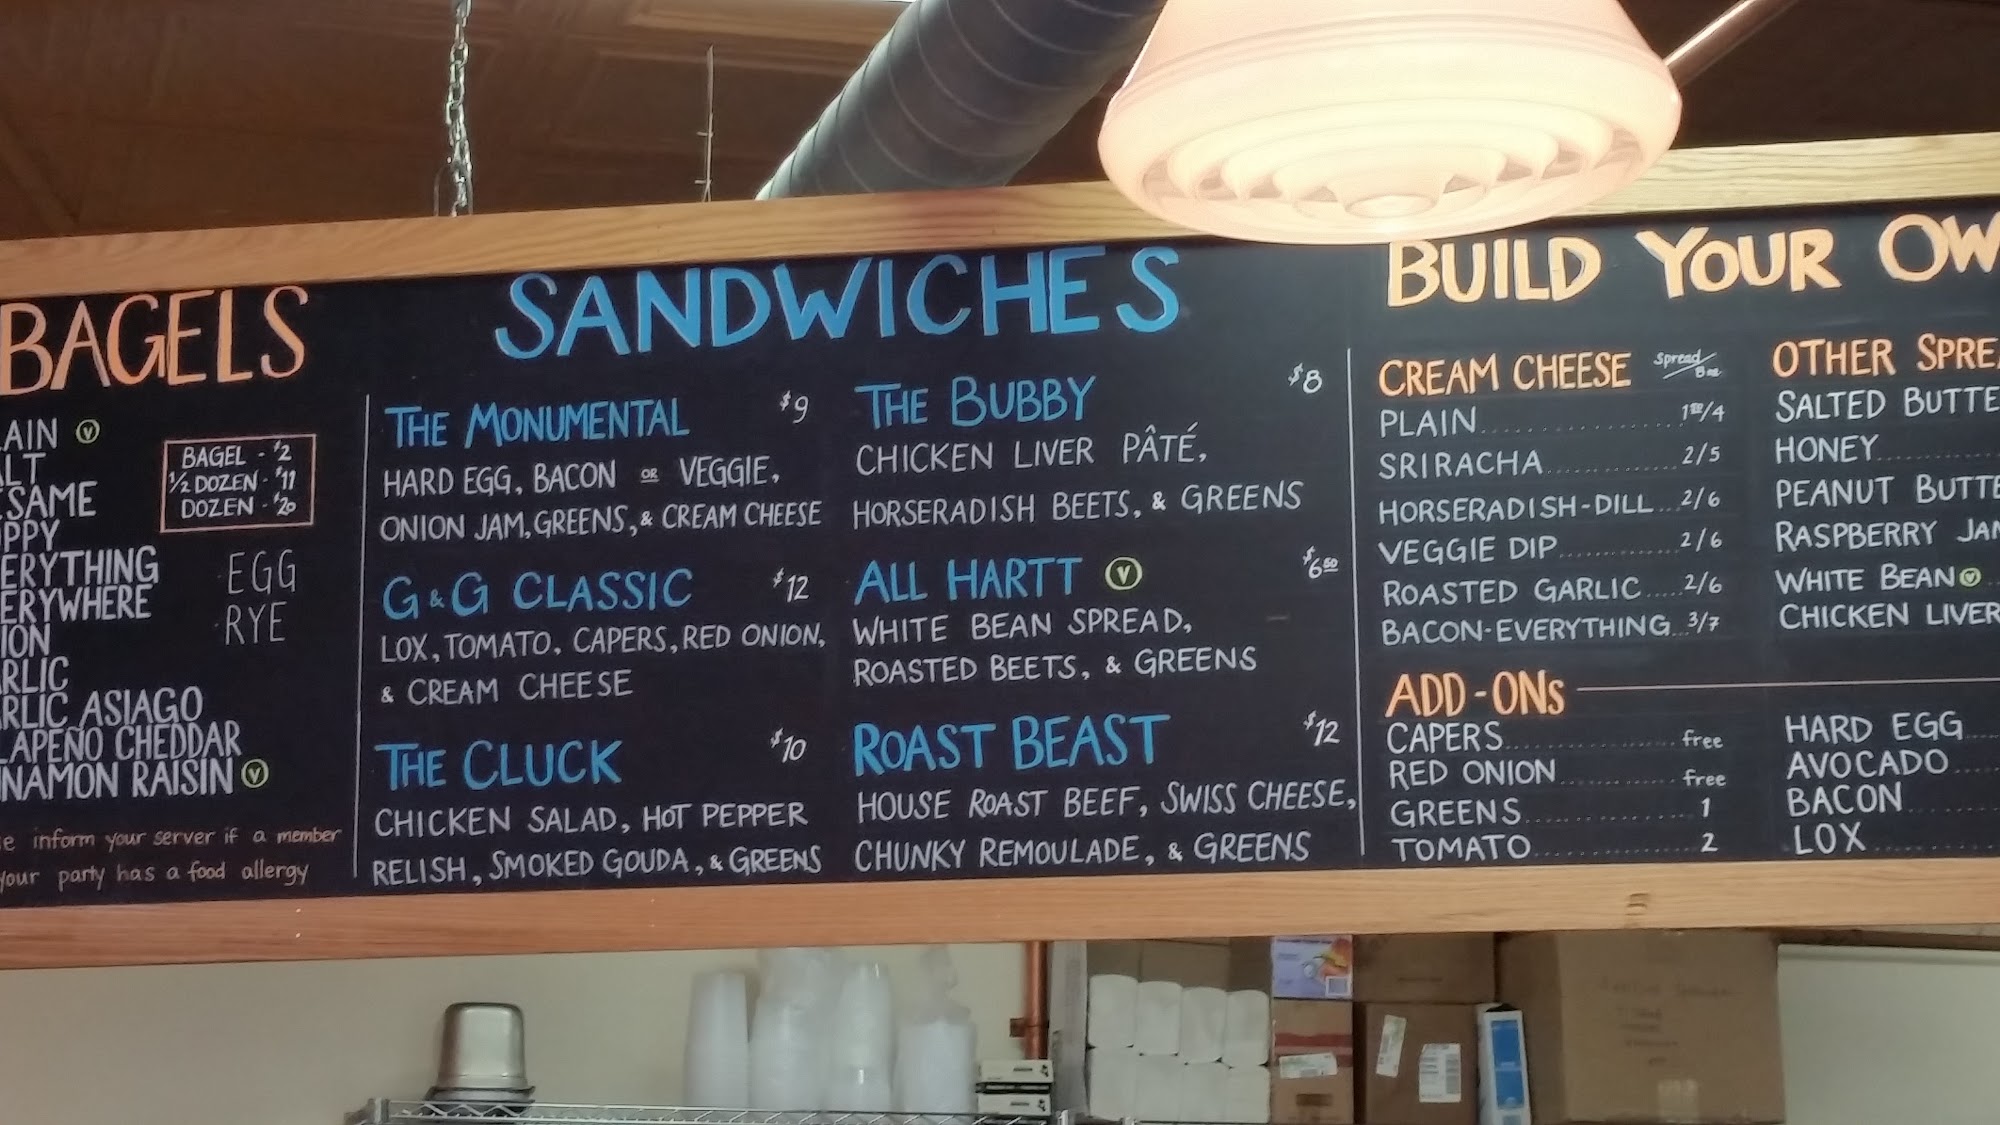 BAGELS
AIN V
BAGEL - $2
1/2 DOZEN - $11
DOZEN - $20
LT
SAME
PPY
ERYTHING
ERYWHERE
ION
RLIC
RLIC ASIAGO
LAPEÑO CHEDDAR
NAMON RAISIN V
EGG
RYE
e inform your server if a member
your party has a food allergy
SANDWICHES
THE MONUMENTAL $9
HARD EGG, BACON OR VEGGIE,
ONION JAM, GREENS, & CREAM CHEESE
G&G CLASSIC $12
LOX, TOMATO, CAPERS, RED ONION,
& CREAM CHEESE
THE CLUCK $10
CHICKEN SALAD, HOT PEPPER
RELISH, SMOKED GOUDA, & GREENS
THE BUBBY $8
CHICKEN LIVER PÂTÉ,
HORSERADISH BEETS, & GREENS
ALL HARTT V $6 50
WHITE BEAN SPREAD,
ROASTED BEETS, & GREENS
ROAST BEAST $12
HOUSE ROAST BEEF, SWISS CHEESE,
CHUNKY REMOULADE, & GREENS
BUILD YOUR OW
CREAM CHEESE spread/8oz
PLAIN 1 50/4
SRIRACHA 2/5
HORSERADISH-DILL 2/6
VEGGIE DIP 2/6
ROASTED GARLIC 2/6
BACON-EVERYTHING 3/7
OTHER SPRE
SALTED BUTTE
HONEY
PEANUT BUTTE
RASPBERRY JAM
WHITE BEAN V
CHICKEN LIVER
ADD-ONS
CAPERS free
RED ONION free
GREENS 1
TOMATO 2
HARD EGG
AVOCADO
BACON
LOX